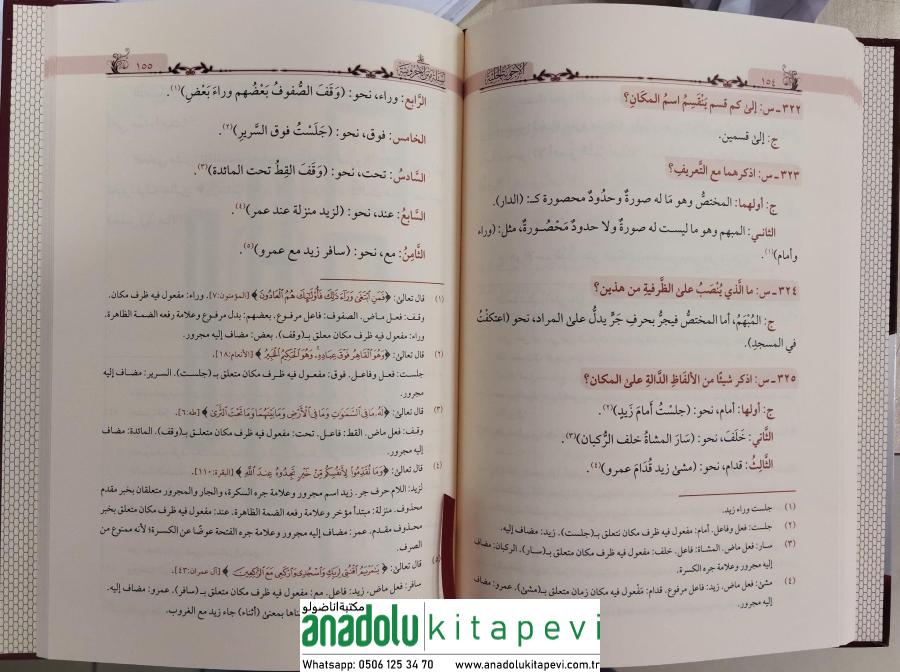 ١٥٤
٣٢٢ ـ س: إلى كم قسم يَنْقَسِمُ اسمُ المكَانِ؟
ج: إلى قسمين.
٣٢٣ ـ س: اذكرهما مع التَّعريفِ؟
ج: أولهما: المختصُّ وهو مَا له صورةٌ وحُدودٌ محصورة كـ: (الدار).
الثاني: المبهم وهو ما ليست له صورةٌ ولا حدودٌ مَحْصُورةٌ، مثل: (وراء
وأمام)(١).
٣٢٤ ـ س: ما الَّذي يُنْصَبُ على الظَّرفيةِ من هذين؟
ج: المُبْهَمُ، أما المختصُّ فيجرُّ بحرفِ جَرٍّ يدلُّ على المراد، نحو (اعتكفْتُ
في المسجدِ).
٣٢٥ ـ س: اذكر شيئًا من الألفَاظِ الدَّالةِ على المكَان؟
ج: أولها: أمام، نحو: (جلسْتُ أمامَ زَيدٍ)(٢).
الثَّاني: خَلَفَ، نحو: (سَارَ المشاةُ خلف الرُّكبان)(٣).
الثَّالِثُ: قدام، نحو: (مشىٰ زيد قُدَامَ عمرو)(٤).
(١) جلست وراء زيد.
(٢) جلست: فعل وفاعل. أمام: مفعول فيه ظرف مكان تتعلق بـ(جلست). زيد: مضاف إليه.
(٣) سار: فعل ماض. المشاة: فاعل. خلف: مفعول فيه ظرف مكان متعلق بـ(سار). الركبان: مضاف
إليه مجرور وعلامة جره الكسرة.
(٤) مشىٰ: فعل ماض. زيد: فاعل مرفوع. قدام: مَفْعول فيه ظرف مكان زمان متعلق بـ(مشىٰ). عمرو: مضاف
إليه مجرور.
١٥٥
الرَّابع: وراء، نحو: (وَقَفَ الصُّفوفُ بَعْضُهم وراءَ بَعْضٍ)(١).
الخامس: فوق، نحو: (جَلَسْتُ فوق السَّريرِ)(٢).
السَّادسُ: تحت، نحو: (وَقَفَ القِطُ تحت المائدة)(٣).
السَّابعُ: عند، نحو: (لزيد منزلة عند عمر)(٤).
الثَّامِنُ: مع، نحو: (سافر زيد مع عمرو)(٥).
(١) قال تعالىٰ: ﴿فَمَنِ ابْتَغَى وَرَاءَ ذَلِكَ فَأُولَئِكَ هُمُ الْعَادُونَ﴾ [المؤمنون:٧]. وراء: مفعول فيه ظرف مكان.
وقف: فعل ماض. الصفوف: فاعل مرفوع. بعضهم: بدل مرفوع وعلامة رفعه الضمة الظاهرة.
وراء: مفعول فيه ظرف مكان معلق بـ(وقف). بعض: مضاف إليه مجرور.
(٢) قال تعالىٰ: ﴿وَهُوَ الْقَاهِرُ فَوْقَ عِبَادِهِ وَهُوَ الْحَكِيمُ الْخَبِيرُ﴾ [الأنعام:١٨].
جلست: فعل وفاعل. فوق: مفعول فيه ظرف مكان متعلق بـ(جلست). السرير: مضاف إليه
مجرور.
(٣) قال تعالىٰ: ﴿لَهُ مَا فِي السَّمَوَاتِ وَمَا فِي الْأَرْضِ وَمَا بَيْنَهُمَا وَمَا تَحْتَ الثَّرَى﴾ [طه:٦].
وقف: فعل ماض. القط: فاعل. تحت: مفعول فيه ظرف مكان متعلق بـ(وقف). المائدة: مضاف
إليه مجرور.
(٤) قال تعالىٰ: ﴿وَمَا تُقَدِّمُوا لِأَنْفُسِكُمْ مِنْ خَيْرٍ تَجِدُوهُ عِنْدَ اللَّهِ﴾ [البقرة:١١٠].
لزيد: اللام حرف جر. زيد اسم مجرور وعلامة جره الكسرة، والجار والمجرور متعلقان بخبر مقدم
محذوف. منزلة: مبتدأ مؤخر وعلامة رفعه الضمة الظاهرة. عند: مفعول فيه ظرف مكان متعلق بخبر
محذوف مقدم. عمر: مضاف إليه مجرور وعلامة جره الفتحة عوضًا عن الكسرة؛ لأنه ممنوع من
الصرف.
قال تعالىٰ: ﴿يَا مَرْيَمُ اقْنُتِي لِرَبِّكِ وَاسْجُدِي وَارْكَعِي مَعَ الرَّاكِعِينَ﴾ [آل عمران:٤٣].
سافر: فعل ماض. زيد: فاعل. مع: مفعول فيه ظرف مكان متعلق بـ(سافر). عمرو: مضاف إليه.
بمعنىٰ (أثناء) جاء زيد مع الغروب.
مكتبة اناضولو
anadolu kitapevi
Whatsapp: 0506 125 34 70 www.anadolukitapevi.com.tr